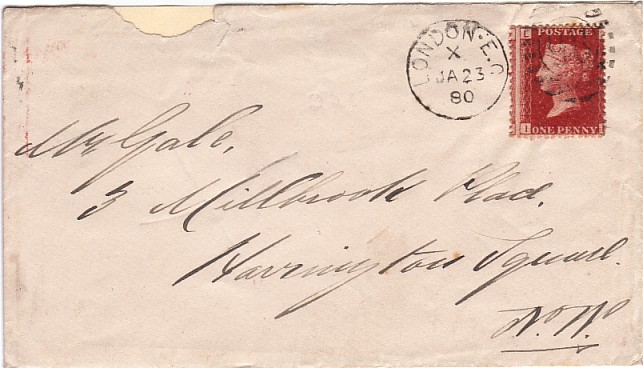 LONDON·E.C
X
JA 23
80
POSTAGE
ONE PENNY
Mr Gale,
3 Millbrook Place,
Harrington Square.
N.W.